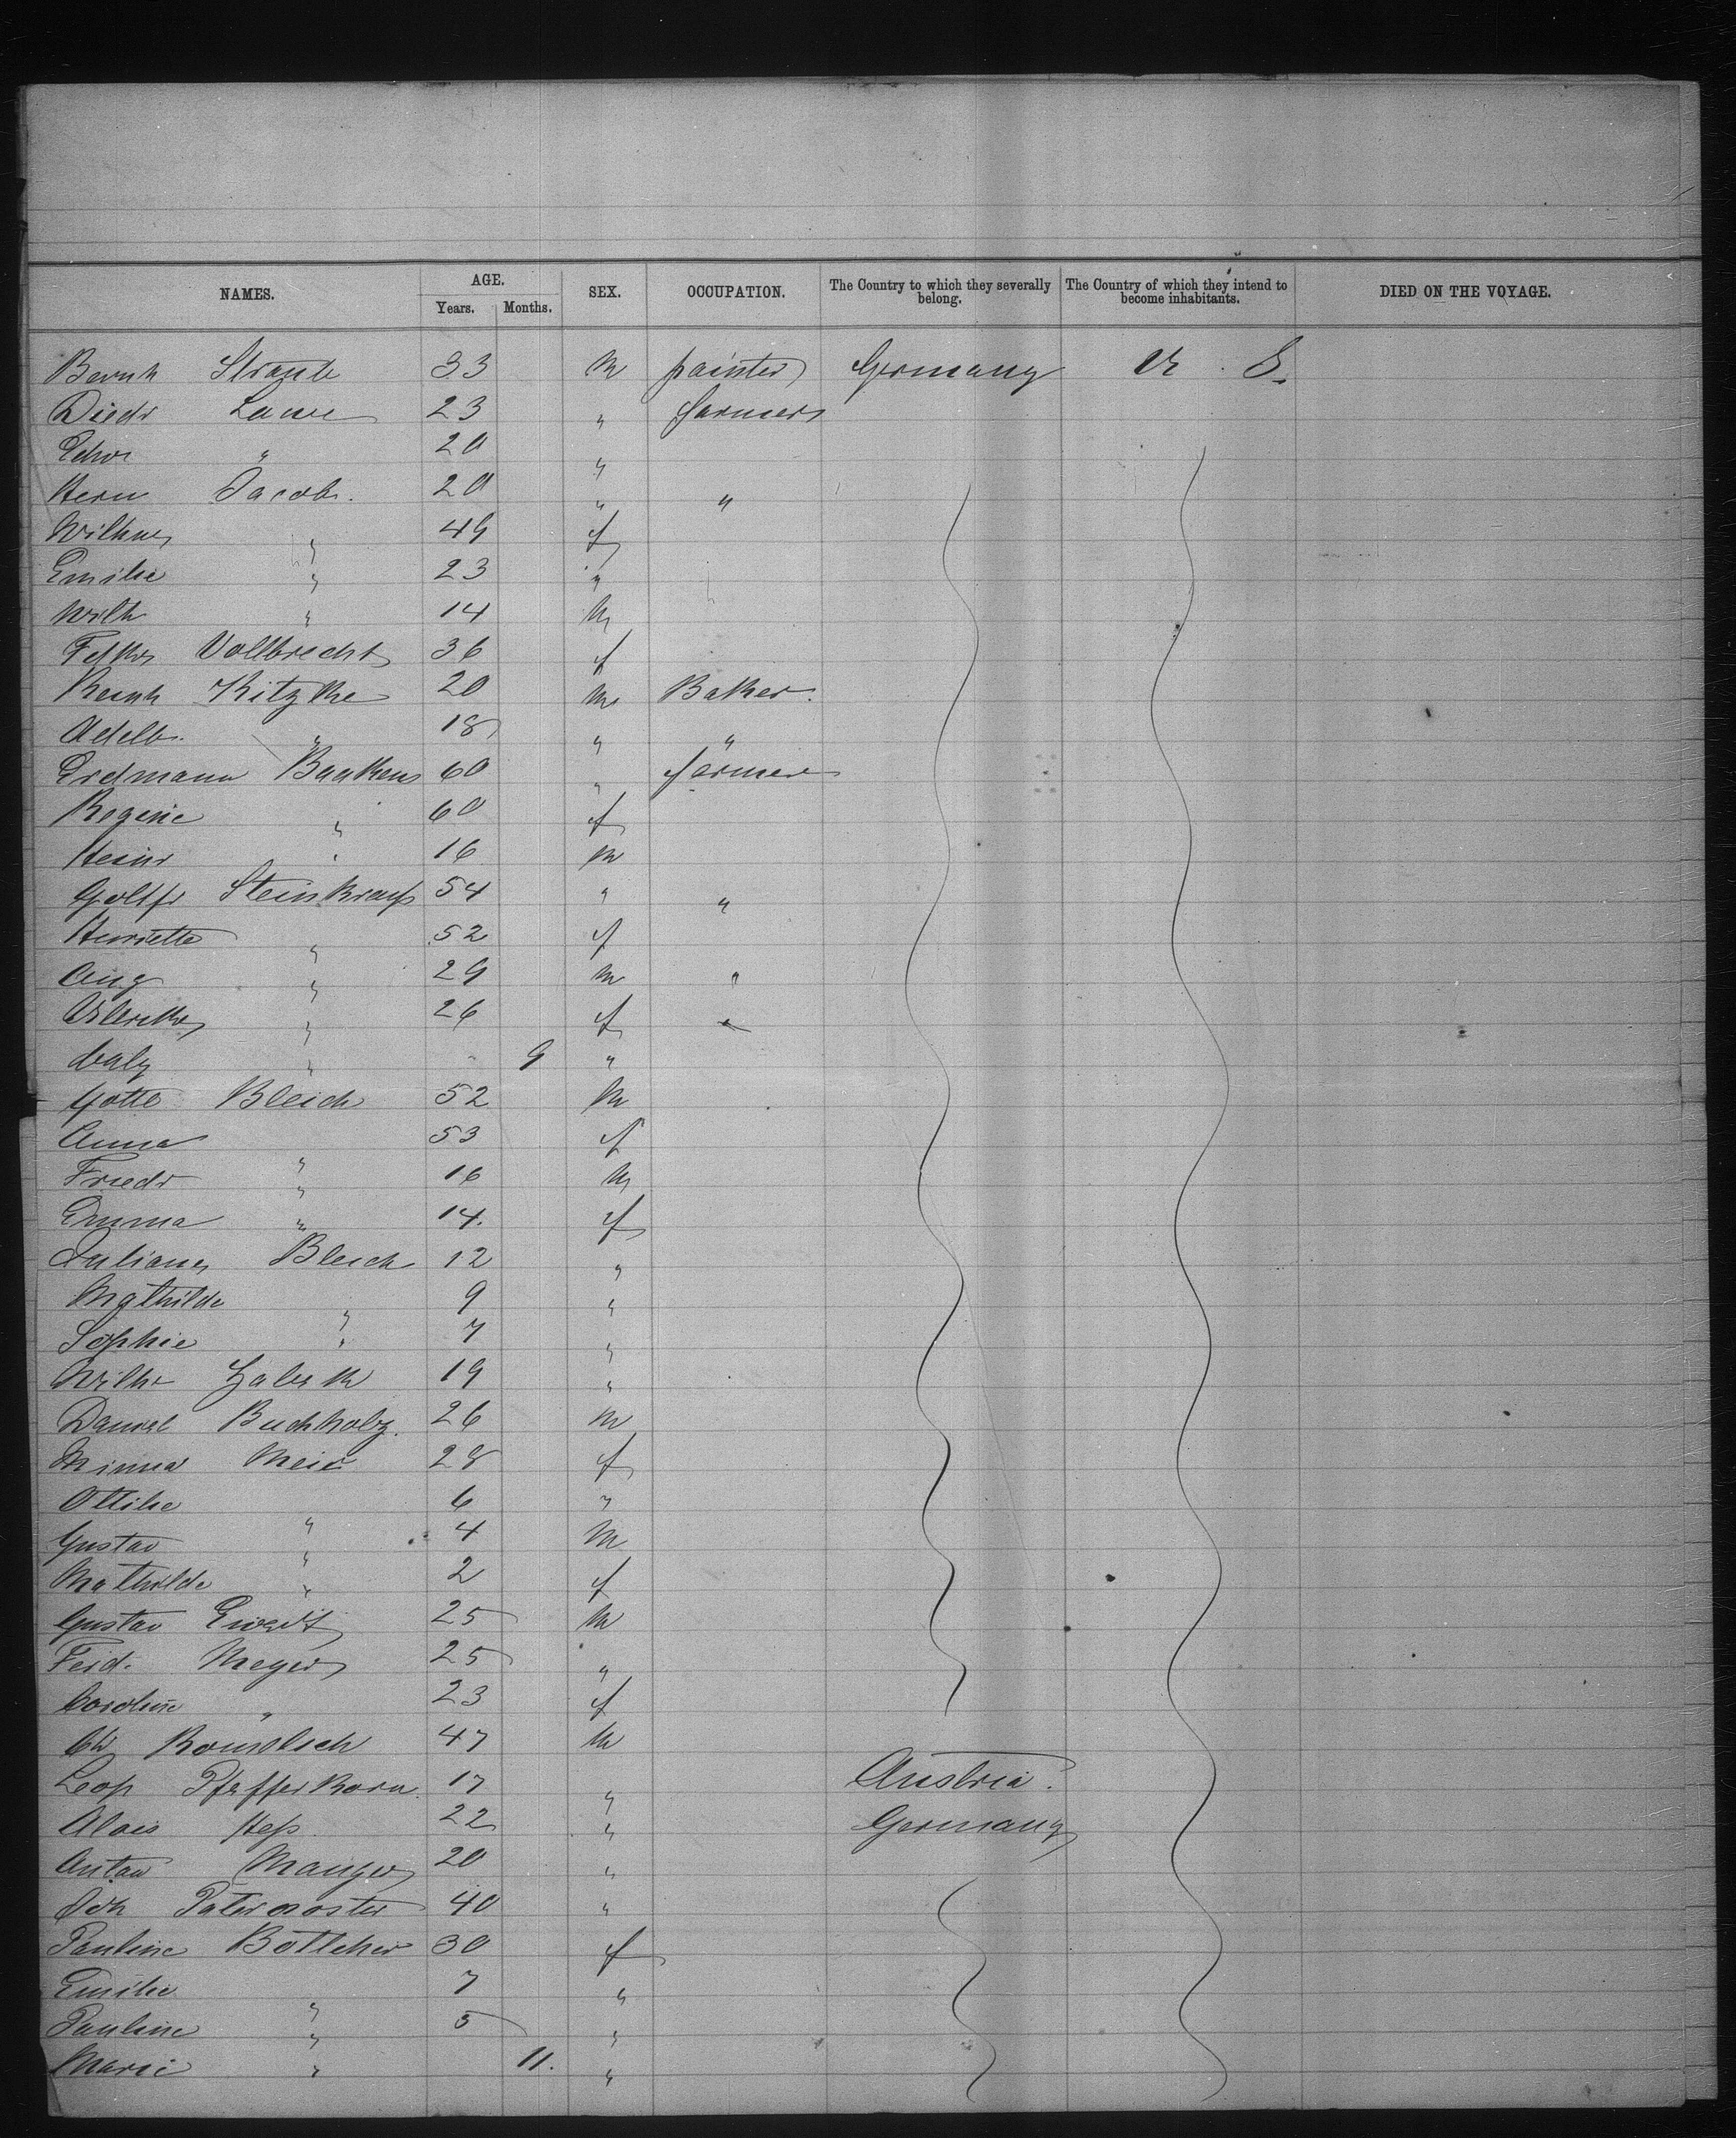 NAMES. AGE. SEX. OCCUPATION. The Country to which they severally belong. The Country of which they intend to become inhabitants. DIED ON THE VOYAGE.
Years. Months.
Bernh Straube 33 m painter Germany U. S.
Diedr 23 " farmer
" 20 "
Herm Jacob. 20 " "
" 49 f
Emilie " 23 "
Wilh " 14 m
Vollbrecht 36 f
Reinh Kitzke 20 m Baker.
Adelb. " 18 " "
Erdmann Baaken 60 " farmer
Regine " 60 f
Heinr " 16 m
Gottfr Steinkrauß 54 " "
Henriette " 52 f
Aug " 29 m "
Ulrike " 26 f
" 9 "
Gottl Bleich 52 m
Anna " 53 f
Friedr " 16 m
Emma " 14. f
Juliane Bleich 12 "
Mathilde " 9 "
Sophie " 7 "
Wilhe 19 "
Daniel Buchholz. 26 m
Minna 28 f
Ottilie " 6 "
Gustav " 4 m
Mathilde " 2 f
Gustav Ewert 25 m
Ferd. Meyer 25 "
Caroline " 23 f
Ch 47 m
Leop Pfefferkorn. 17 " Austria.
Alois Heß 22 " Germany
Anton Manger 20 "
Joh Paternoster 40 "
Pauline Böttcher 30 f
Emilie " 7 "
Pauline " 5 "
Marie " 11. "